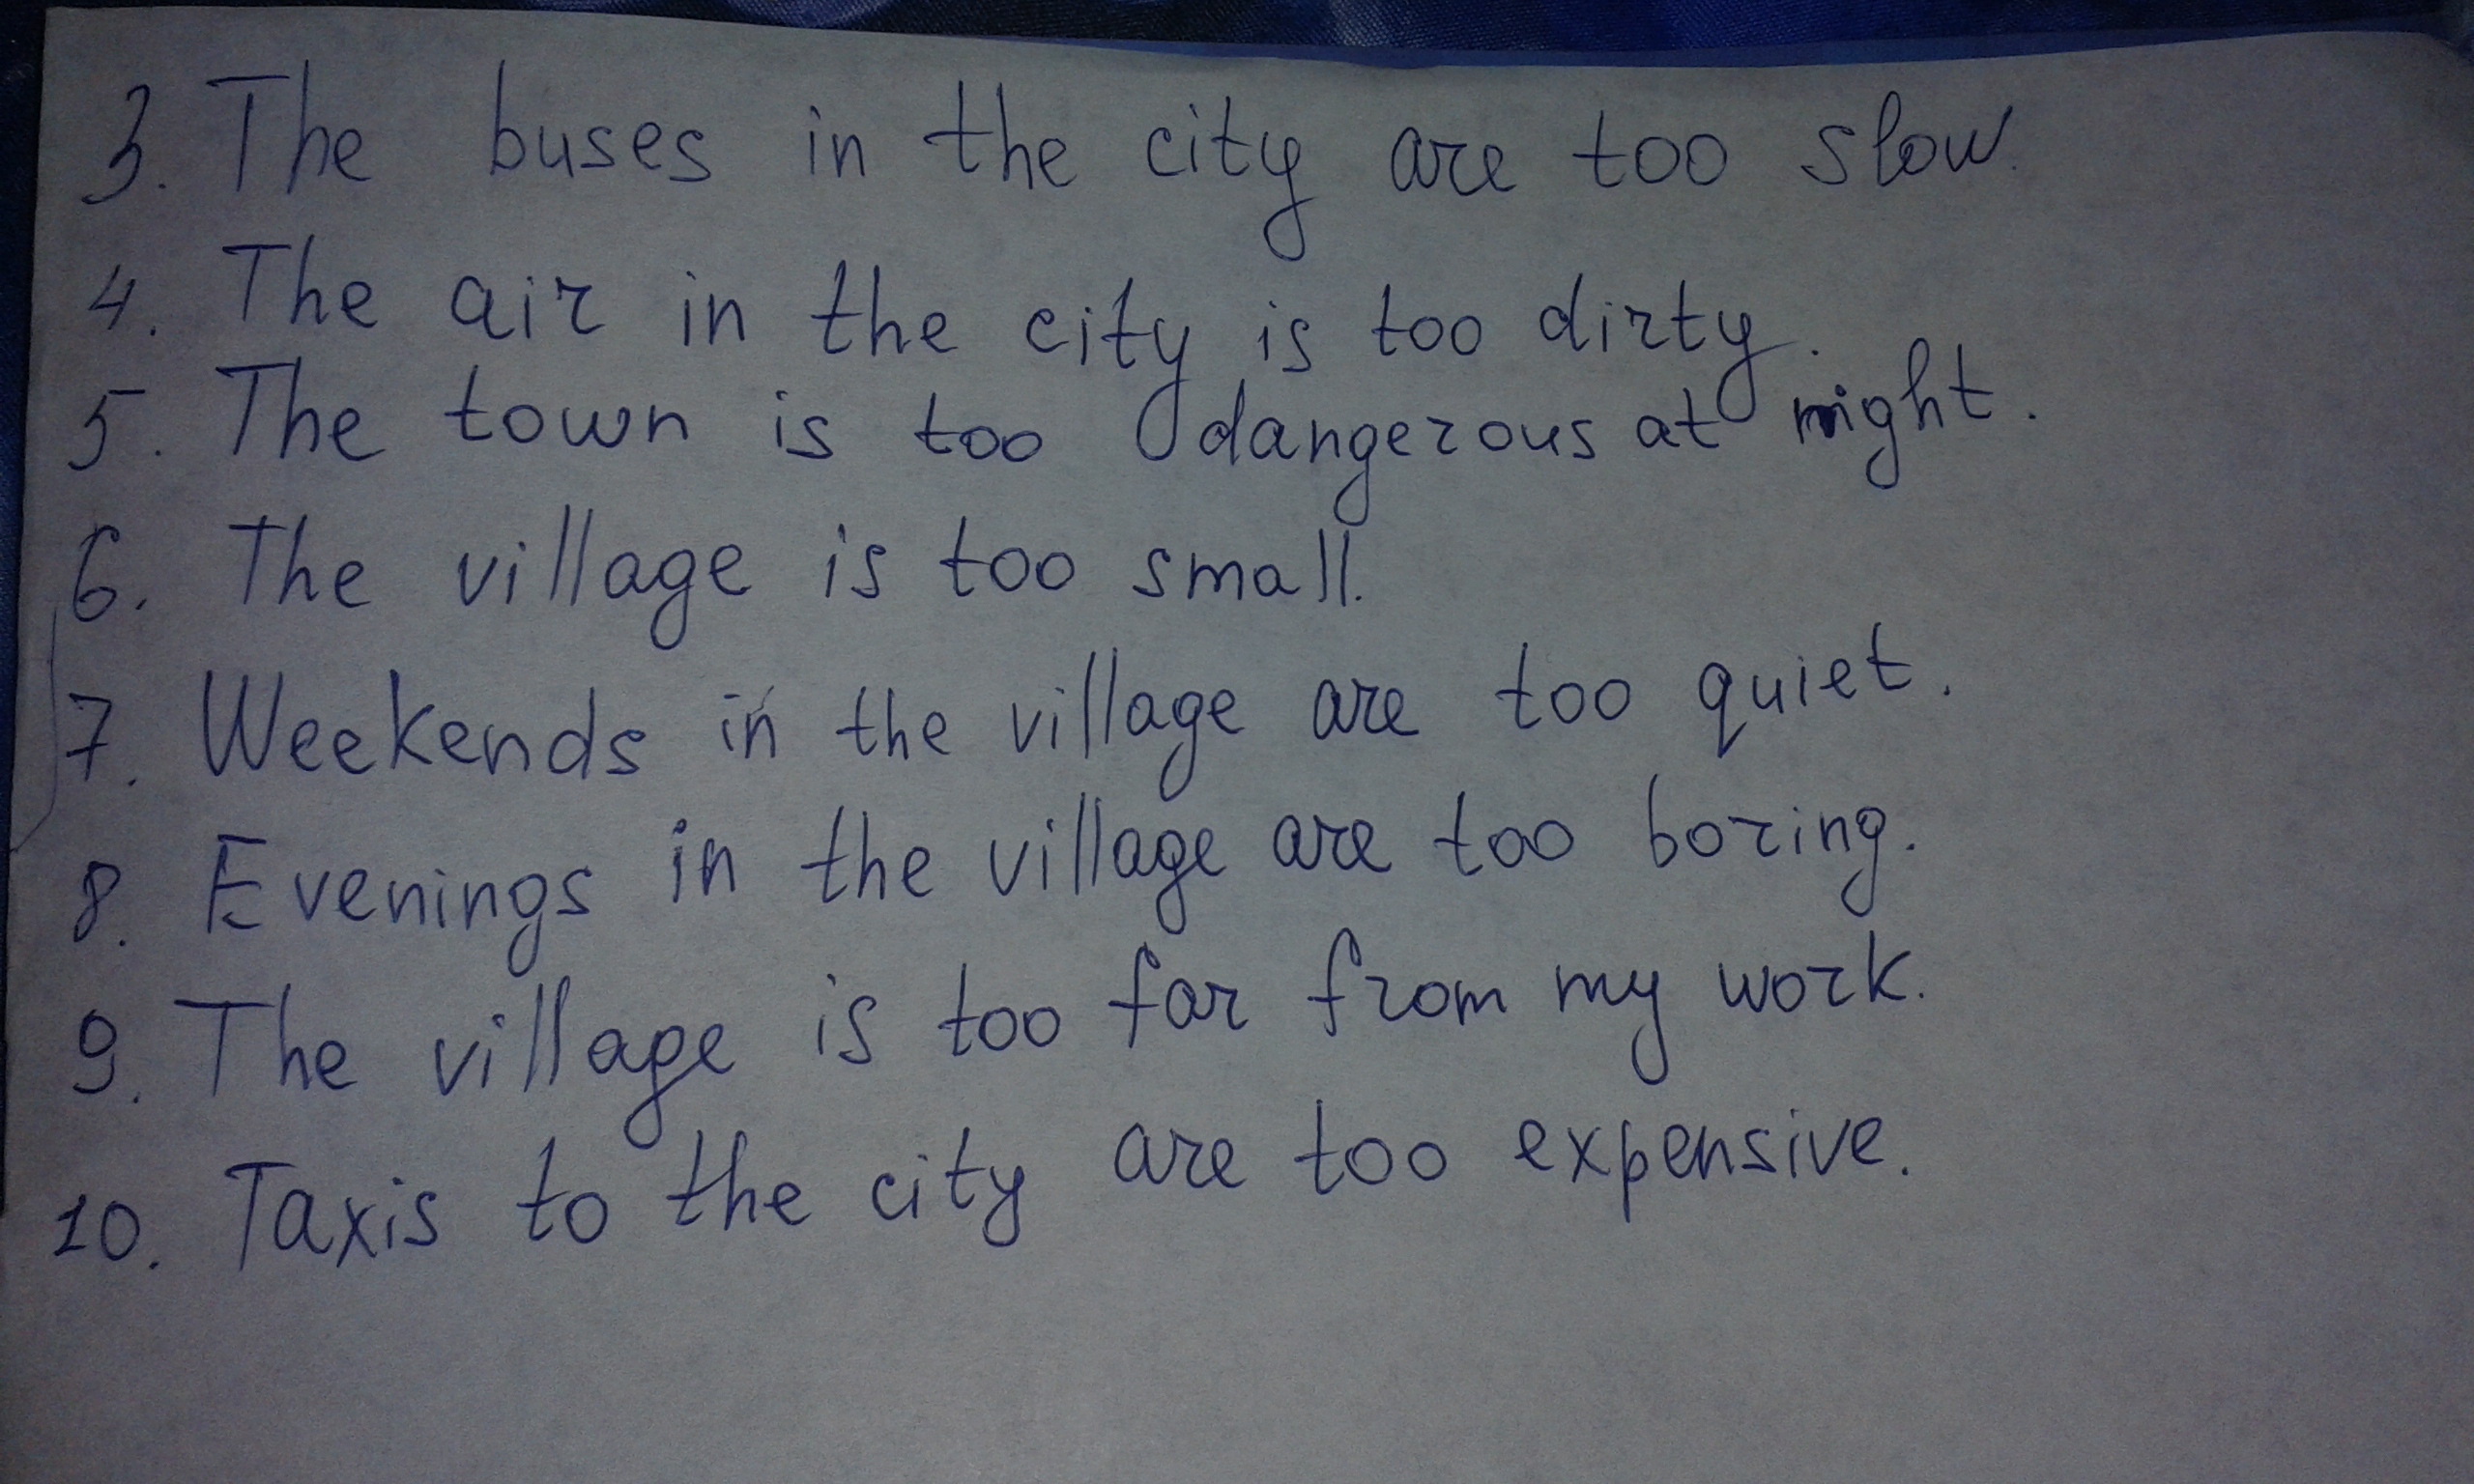 3. The buses in the city are too slow.
4. The air in the city is too dirty.
5. The town is too dangerous at night.
6. The village is too small.
7. Weekends in the village are too quiet.
8. Evenings in the village are too boring.
9. The village is too far from my work.
10. Taxis to the city are too expensive.